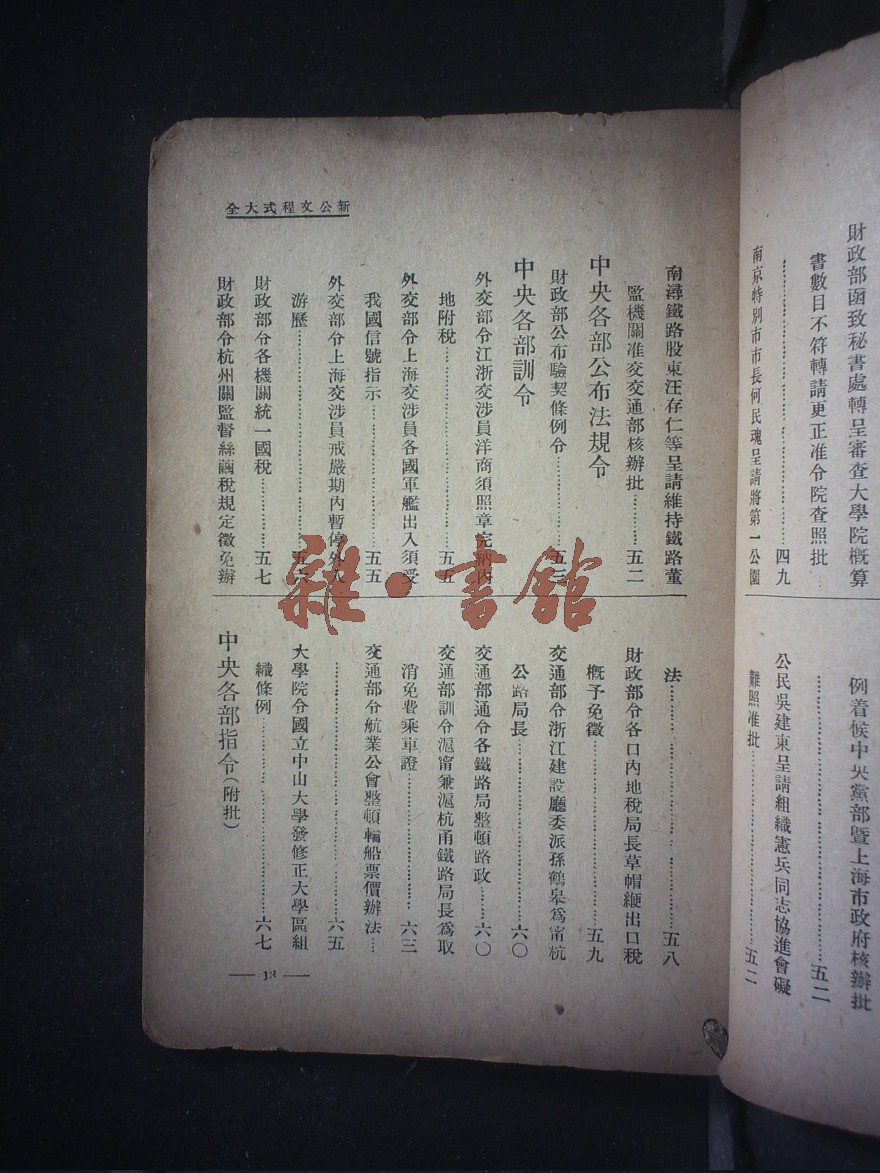 財政部函致秘書處轉呈審查大學院概算
書數目不符轉請更正准令院查照批
……………………四九
南京特別市市長何民魂呈請將第一公園
例着候中央黨部暨上海市政府核辦批
……………………五二
公民吳建東呈請組織憲兵同志協進會礙
難照准批……………………五二
新公文程式大全
南潯鐵路股東汪存仁等呈請維持鐵路董
監機關准交交通部核辦批……五二
中央各部公布法規令
財政部公布驗契條例令……五三
中央各部訓令
外交部令江浙交涉員洋商須照章完納內
地附稅……………………五五
外交部令上海交涉員各國軍艦出入須受
我國信號指示……………………五五
外交部令上海交涉員戒嚴期內暫停外人
游歷……………………五六
財政部令各機關統一國稅……………五七
財政部令杭州關監督絲繭稅規定徵免辦
法……………………五八
財政部令各口內地稅局長草帽緶出口稅
概予免徵……………………五九
交通部令浙江建設廳委派孫鶴皋爲甯杭
公路局長……………………六〇
交通部通令各鐵路局整頓路政……六〇
交通部訓令滬甯兼滬杭甬鐵路局長爲取
消免費乘車證……………………六三
交通部令航業公會整頓輪船票價辦法…
……………………六五
大學院令國立中山大學發修正大學區組
織條例……………………六七
中央各部指令(附批)
— 13 —
雜·書館